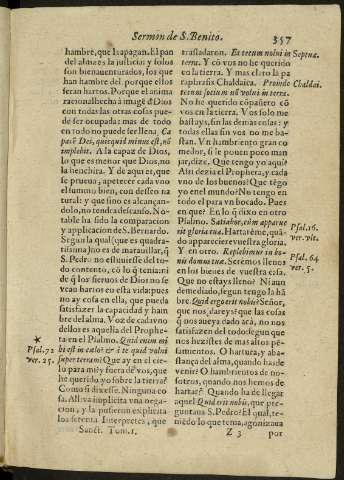 Sermon de S. Benito.
357
hambre, que la apagan. El pan
del alma es la justicia; y solos
son bienauenturados, los que
han hambre del. porque ellos
seran hartos. Porque el anima
racional hecha à imagē d Dios
con todas las otras cosas pue-
de ser ocupada: mas de todo
en todo no puede ser llena, Ca
pacē Dei, quicquid minus est, nō
implebit. A la capaz de Dios,
lo que es menor que Dios, no
la henchira. Y de aqui es, que
se prueua, apetecer cada vno
el summo bien, con desseo na
tural; y que sino es alcançan-
dolo, no tendra descanso. No-
table ha sido la comparacion
y applicacion de S. Bernardo.
Segun la qual (que es quadra-
tissima) no es de marauillar, q̄
S. Pedro no estuuiesse del to-
do contento, cō lo q̄ tenia: ni
de q̄ los sieruos de Dios no se
vean hartos en esta vida: pues
no ay cosa en ella, que pueda
satisfazer la capacidad y ham
bre del alma. Voz de cada vno
dellos es aquella del Prophe-
ta en el Psalmo. Quid enim mi
bi est in cælo? & à te quid volui
super terram? Que ay en el cie-
lo para mi y fuera de vos, que
he querido yo sobre la tierra?
Como si dixesse. Ninguna co-
sa. Alli va implicita vna nega-
cion, y la pusieron explicita
los setenta Interpretes, que
Psal. 72
ver. 25.
Sanct. Tom. 1.
trasladaron. Et tecum nolui in
terra. Y cō vos no he querido
en la tierra. Y mas claro la pa
raphrasis Chaldaica. Proinde
tecum socium nō volui in terra.
No he querido cōpañero cō
vos en la tierra. Vos solo me
bastays, sin las demas cosas: y
todas ellas sin vos no me ba-
stan. Vn hambriento gran co
medor, si le ponen poco man
jar, dize. Que tengo yo aqui?
Assi dezia el Propheta, y cada
vno de los buenos? Que tēgo
yo en el mundo? No tengo en
todo el para vn bocado. Pues
en que? En lo q̄ dixo en otro
Psalmo. Satiabor, cōm apparue
rit gloria tua. Hartarème, quā-
do appareciere vuestra gloria.
Y en otro. Replebimur in bo-
nis domus tuæ. Seremos llenos
en los bienes de vuestra casa.
Que no estays lleno? Ni aun
demediado, segun tengo la hā
bre. Quid ergo erit nobis? Señor,
que nos dareys? que las cosas
q̄ nos aueys dado acà, no nos
satisfazen del todo: segun que
nos hezistes de mas altos pē-
samientos. O hartura, y aba-
stança del alma, quando has de
venir? O hambrientos de no-
sotros, quando nos hemos de
hartar? Quando ha de llegar
aquel Quid erit nobis, que pre-
guntaua S. Pedro? El qual, te-
niēdo lo que tenia, agonizaua
Z 3
por
Septua.
Chaldai.
Psal. 16.
ver. vlt.
Psal. 64
ver. 5.